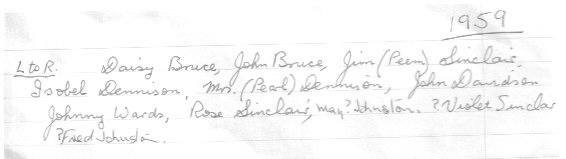 1959
L to R. Daisy Bruce, John Bruce, Jim (Peem) Sinclair,
Isobel Dennison, Mrs. (Pearl) Dennison, John Davidson
Johnny Wards, Rose Sinclair, May? Johnston. ? Violet Sinclar
? Fred Johnston.